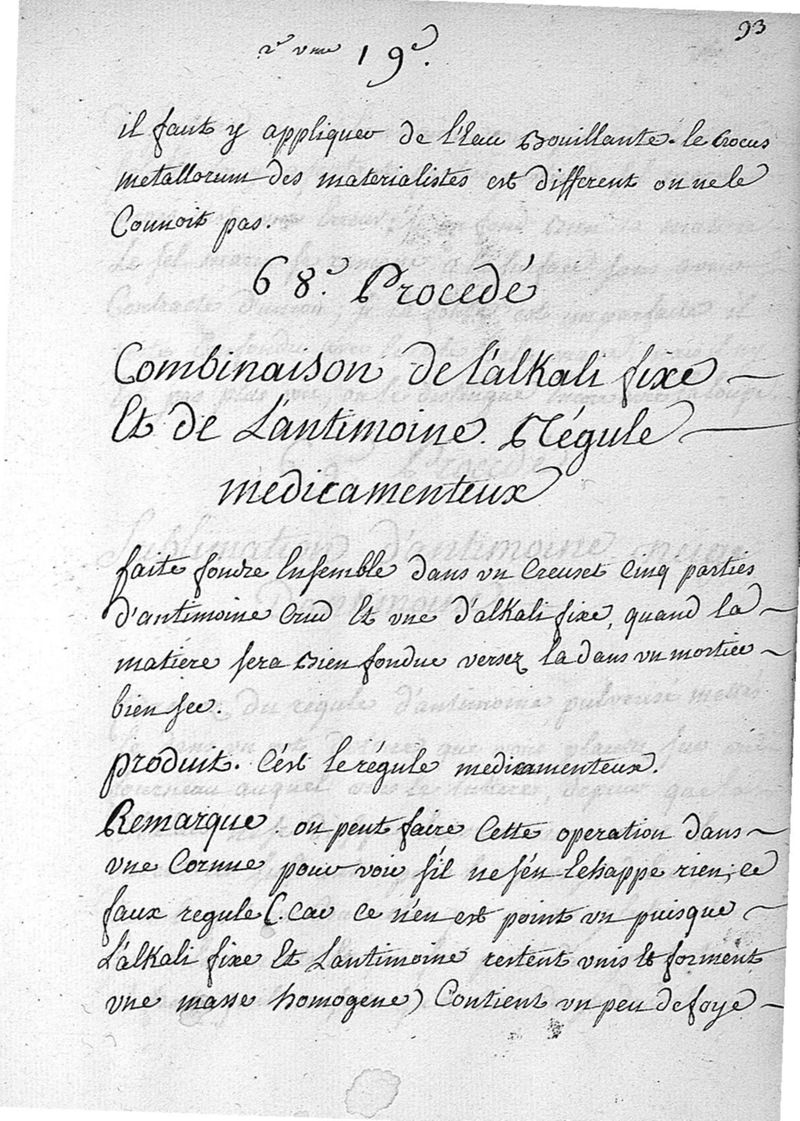 93
19e.
il faut y appliquer de l'Eau Bouillante. le Crocus
metallorum des materialistes est different on ne le
Connoit pas.
68.e Procedé
Combinaison de l'alkali fixe
Et de L'antimoine. Régule
medicamenteux
faite fondre Ensemble dans vn Creuset Cinq parties
d'antimoine Crud Et vne d'alkali fixe, quand la
matiere sera Bien fondue versez la dans vn mortier
bien sec.
produit. C'est le régule medicamenteux.
Remarque. on peut faire Cette operation dans
vne Cornue pour voir s'il ne s'en Echappe rien, ce
faux regule (. car ce n'en est point vn puisque
L'alkali fixe Et L'antimoine restent vnis Et forment
vne masse homogene) Contient vn peu de foye